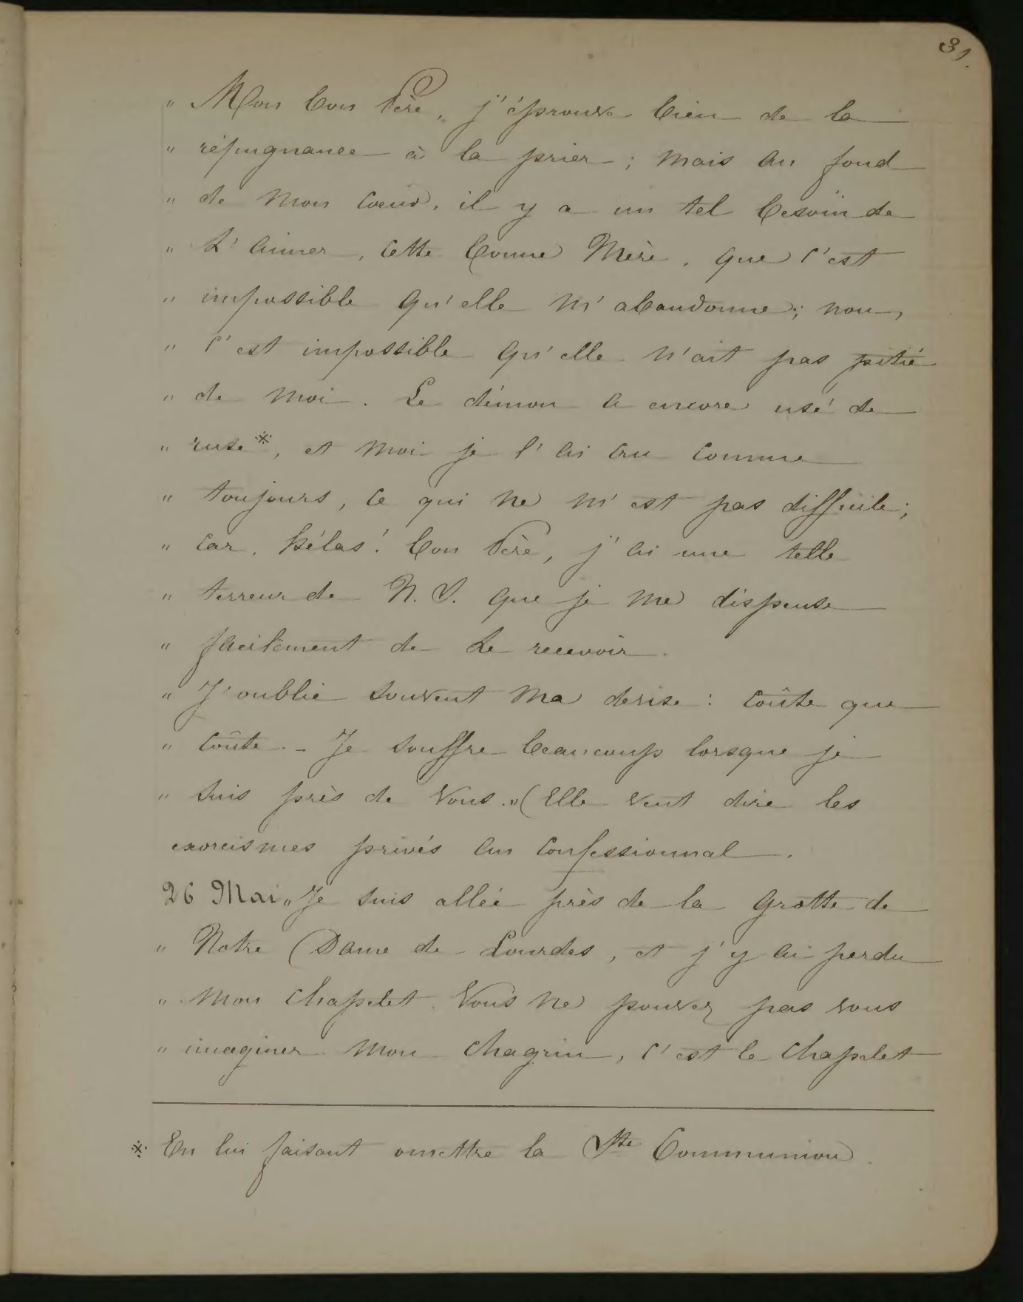 31.
" Mon bon Père, j'éprouve bien de la
" répugnance à la prier ; mais au fond
" de mon cœur, il y a un tel besoin de
" L'aimer, cette bonne Mère, que c'est
" impossible qu'elle m'abandonne ; non,
" c'est impossible qu'elle n'ait pas pitié
" de moi. Le démon a encore usé de
" ruse*, et moi je l'ai cru comme
" toujours, ce qui ne m'est pas difficile ;
" car, hélas ! bon Père, j'ai une telle
" terreur de N. S. que je me dispense
" facilement de Le recevoir.
" J'oublie souvent ma devise : coûte que
" coûte. - Je souffre beaucoup lorsque je
" suis près de vous. » (Elle veut dire les
exorcismes privés au confessionnal.
26 Mai " Je suis allée près de la grotte de
" Notre Dame de Lourdes, et j'y ai perdu
" mon chapelet. Vous ne pouvez pas vous
" imaginer mon chagrin, c'est le chapelet
* En lui faisant omettre la Ste Communion